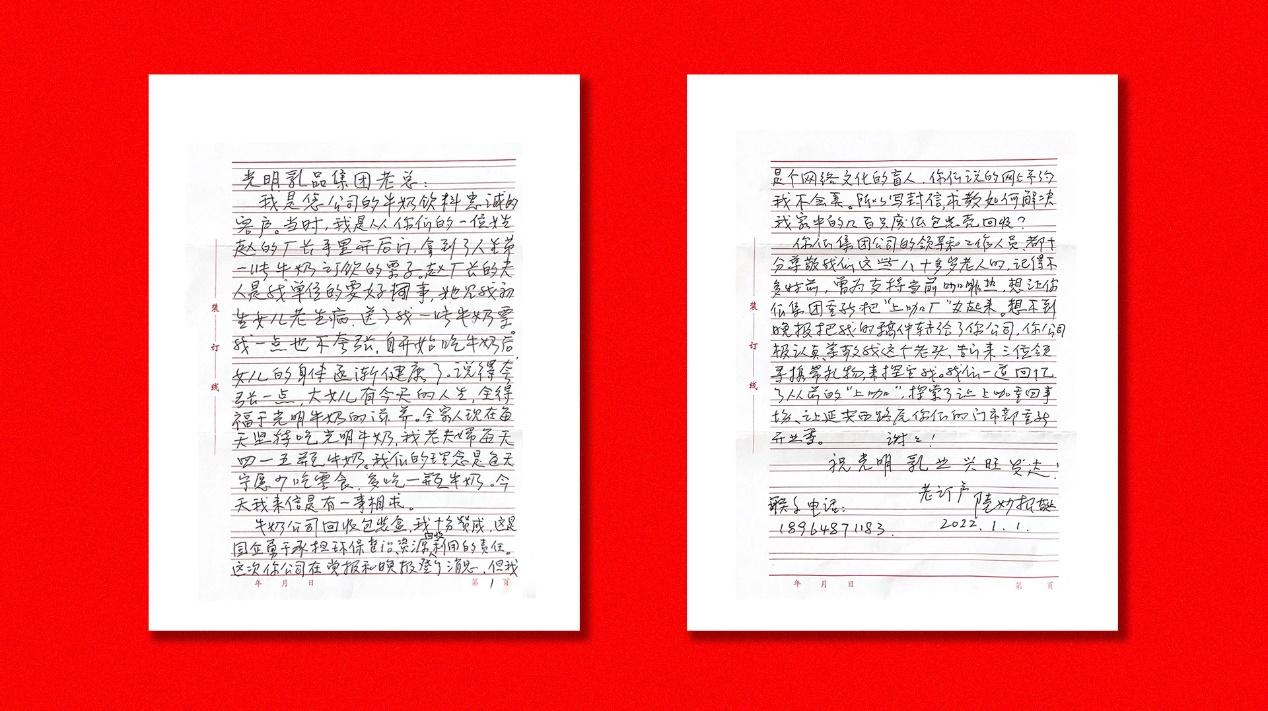 光明乳品集团老总：
我是您公司的牛奶饮料忠诚的
客户。当时，我是从你们的一位姓
赵的厂长手里开后门，拿到了人生第
一些牛奶订饮的票子。赵厂长的夫
人是我单位的要好同事，她见我初
生女儿老生病，送了我一些牛奶票。
我一点也不夸张，自开始吃牛奶后，
女儿的身体逐渐健康了。说得夸
张一点，大女儿有今天的人生，全得
福于光明牛奶的滋养。全家人现在每
天坚持吃光明牛奶，我老夫妇每天
四一五瓶牛奶。我们的理念是每天
宁愿少吃零食，多吃一瓶牛奶。今
天我来信是有一事相求。
牛奶公司回收包装盒，我十分赞成，这是
国企勇于承担环保意识、资源回收利用的责任。
这次你公司在党报和晚报登了消息，但我
年 月 日
第 1 页
装 订 线
是个网络文化的盲人，你们说的网上予约
我不会弄。所以写封信求教如何解决
我家中的几百只废纸包装壳回收？
你们集团公司的领导和工作人员都十
分尊敬我们这些八十多岁老人的，记得不
多时前，曾为支持当前咖啡热，想让你
们集团重新把“上咖厂”办起来。想不到
晚报把我的稿件转给了你公司，你公司
极认真、尊敬我这个老头，前来三位领
导携带礼物来探望我。我们一道回忆
了从前的“上咖”，探索了让上咖重回市
场、让延安西路原你们的门市部重新
开业等。 谢谢！
祝光明乳业兴旺发达！
老订户
联系电话：
18964871183.
2022.1.1.
年 月 日
第 页
装 订 线